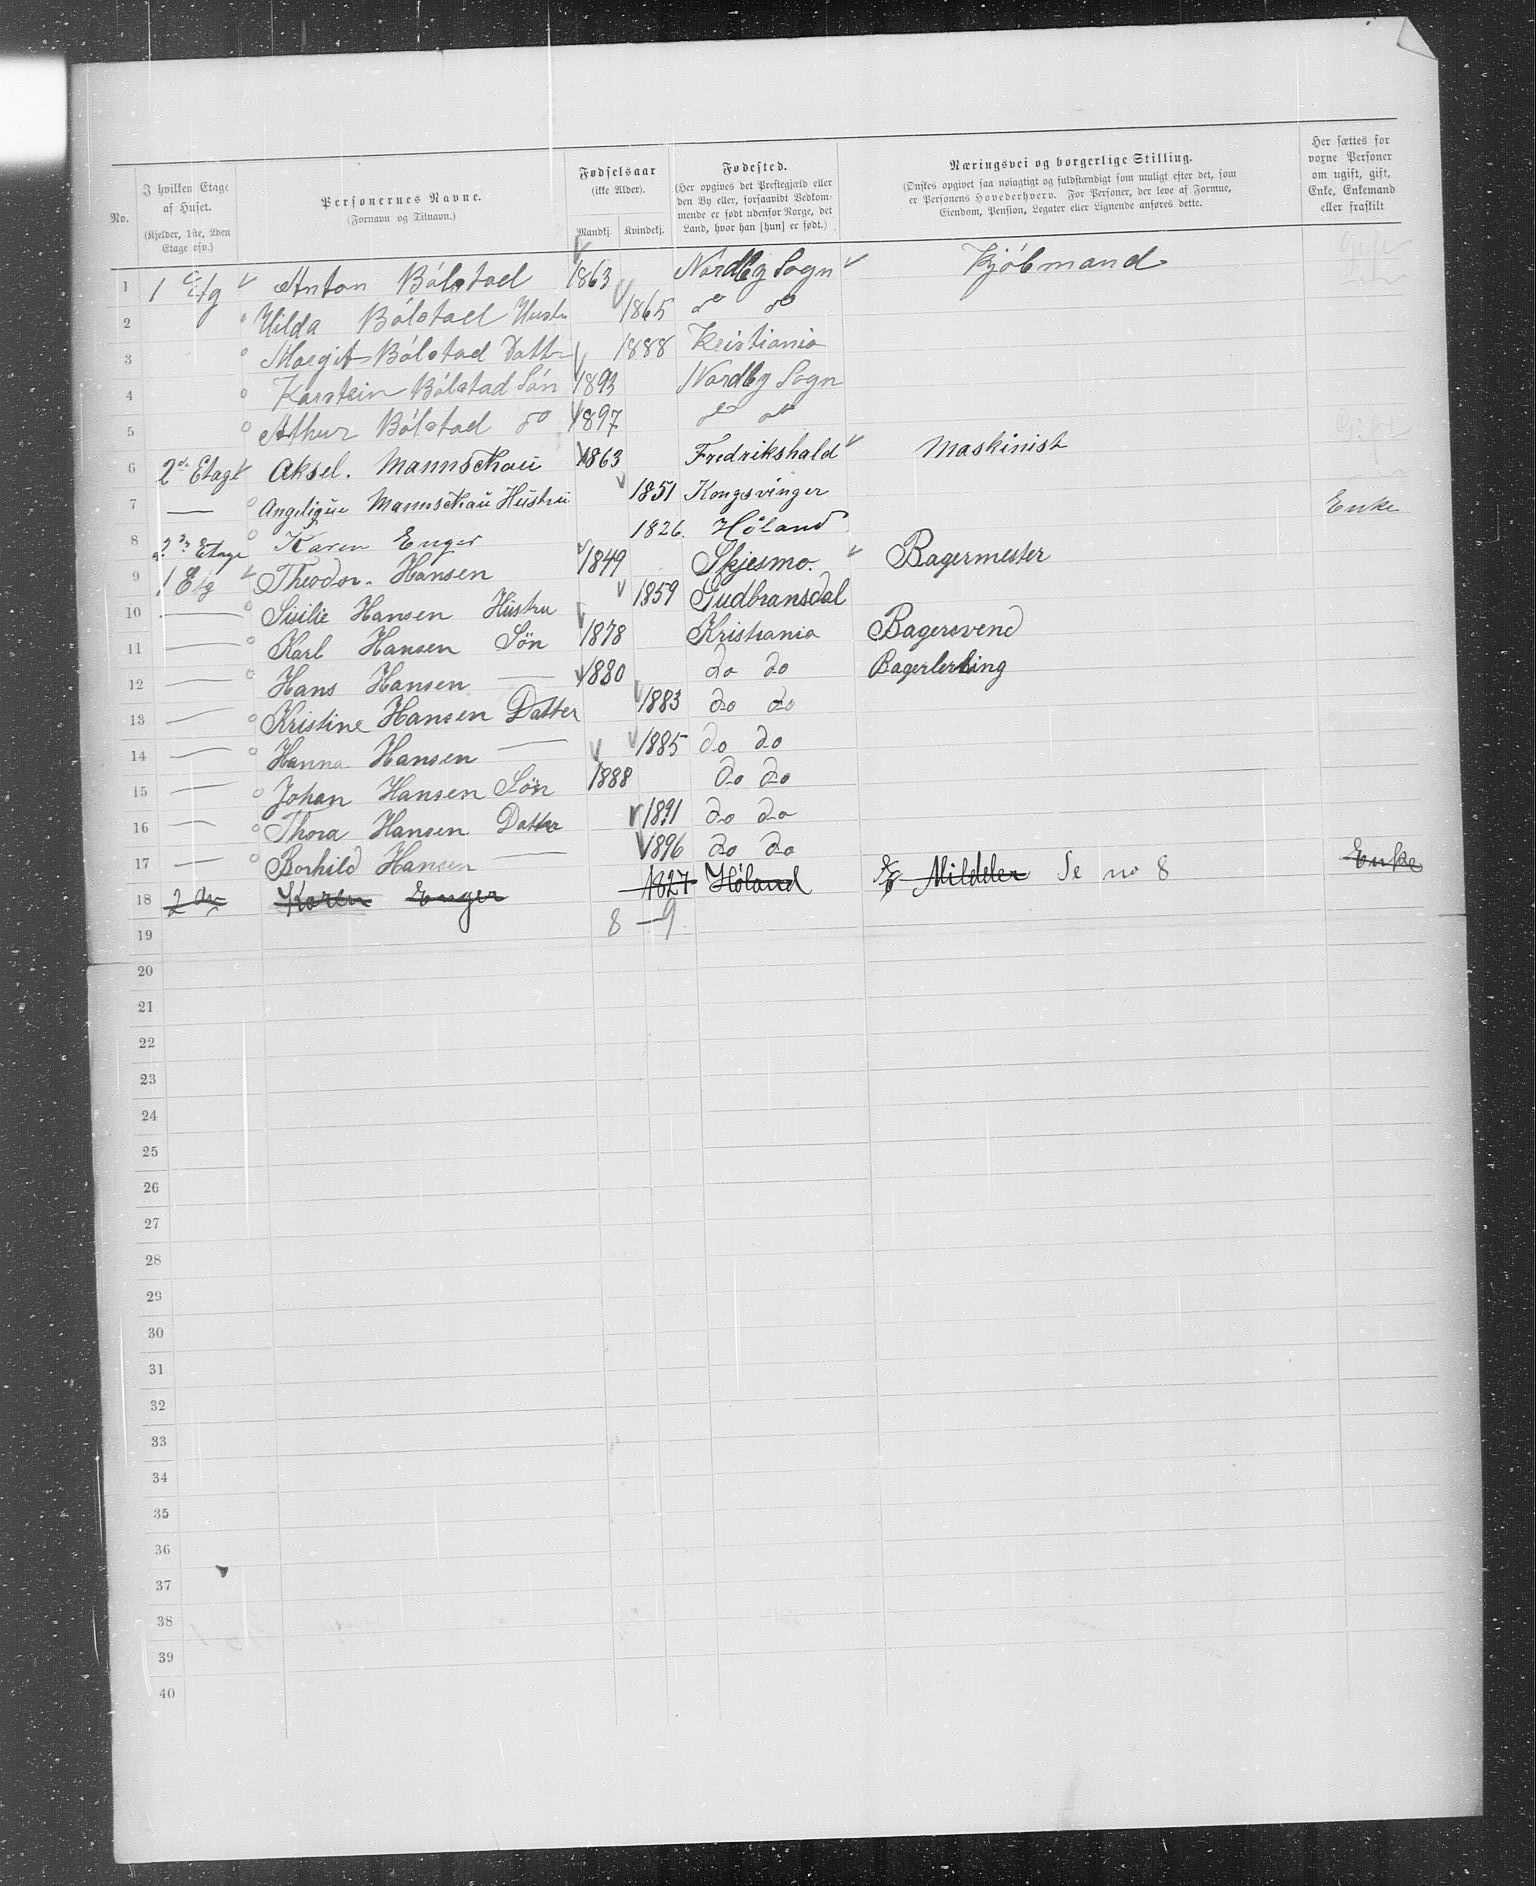 No. | I hvilken Etage af Huset. (Kjelder, 1ste, 2den Etage osv.) | Personernes Navne. (Fornavn og Tilnavn.) | Fødselsaar (ikke Alder). Mandkj. Kvindekj. | Fødested. (Her opgives det Prestegjæld eller den By eller, forsaavidt Vedkommende er født udenfor Norge, det Land, hvor han [hun] er født.) | Næringsvei og borgerlige Stilling. (Ønskes opgivet saa nøiagtigt og fuldstændigt som muligt efter det, som er Personens Hovederhverv. For Personer, der leve af Formue, Eiendom, Pension, Legater eller Lignende anføres dette. | Her sættes for voxne Personer om ugift, gift, Enke, Enkemand eller fraskilt
1 1 Etg Anton Bólstad 1863 Nordby Sogn Kjóbmand
2 Hilda Bólstad Hustr 1865 do do
3 Margit Bólstad Dattr 1888 Kristiania
4 Karstein Bólstad Són 1893 Nordby Sogn
5 Athur Bólstad do 1897 do do
6 2den Etage Aksel. Mannschau 1863 Fredrikshald Maskinist
7 — Angeligue Mannschau Hustru 1851 Kongsvinger
8 2den Etage Karen Enger 1826. Höland Enke
9 1 Etg Theodor. Hansen 1849 Skjesmo. Bagermester
10 — Sisilie Hansen Hustru 1859 Gudbransdal
11 — Karl Hansen Søn 1878 Kristiania Bagersvend
12 — Hans Hansen — 1880 do do Bagerlerling
13 — Kristine Hansen Datter 1883 do do
14 — Hanna Hansen — 1885 do do
15 — Johan Hansen Søn 1888 do do
16 — Thora Hansen Datter 1891 do do
17 — Borhild Hansen — 1896 do do
18 2den Karen Enger 1827 Höland Middler Se no 8 Enke
19 8 - 9
20
21
22
23
24
25
26
27
28
29
30
31
32
33
34
35
36
37
38
39
40